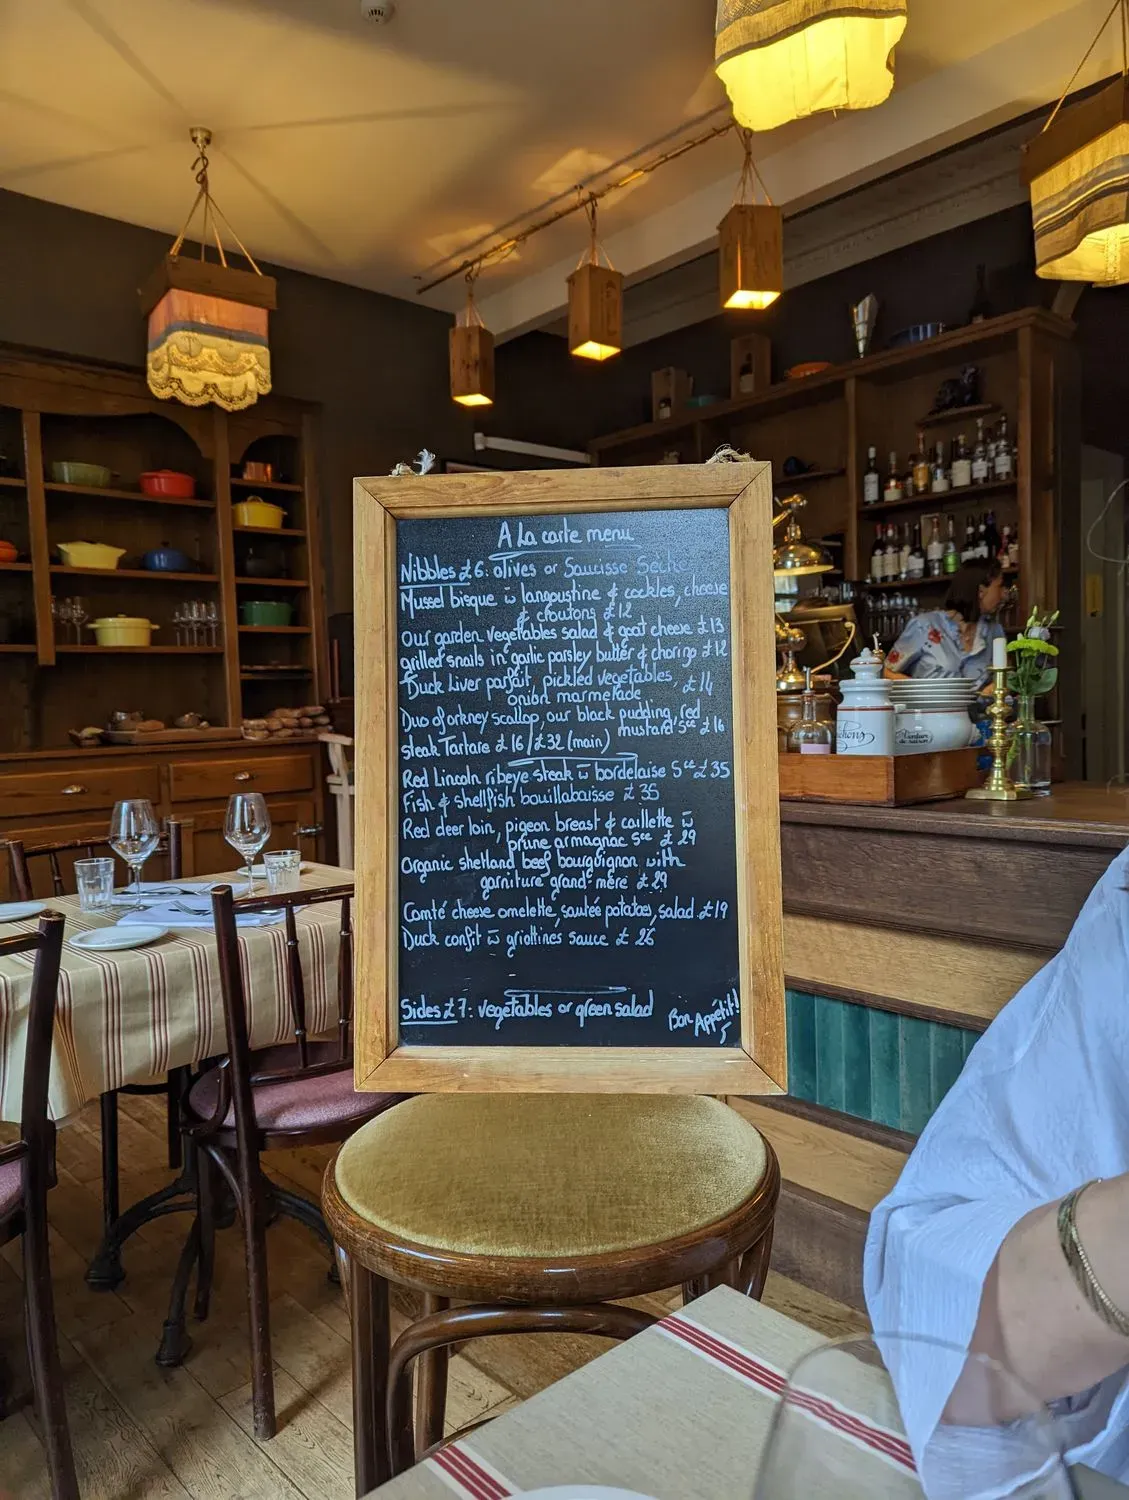 A La carte menu
Nibbles £6: olives or Saucisse Sèche
Mussel bisque w̄ langoustine & cockles, cheese
& croutons £12
Our garden vegetables salad & goat cheese £13
grilled snails in garlic parsley butter & chorizo £12
Duck Liver parfait, pickled vegetables,
onion marmelade £14
Duo of orkney scallop, our black pudding, red
mustard sce £16
Steak Tartare £16/£32 (main)
Red Lincoln ribeye steak w̄ bordelaise sce £35
Fish & shellfish bouillabaisse £35
Red deer loin, pigeon breast & caillette w̄
prune armagnac sce £29
Organic shetland beef bourguignon with
garniture grand-mère £29
Comté cheese omelette, sautée potatoes, salad £19
Duck confit w̄ griottines sauce £26
Sides £7: vegetables or green salad
Bon Appétit!